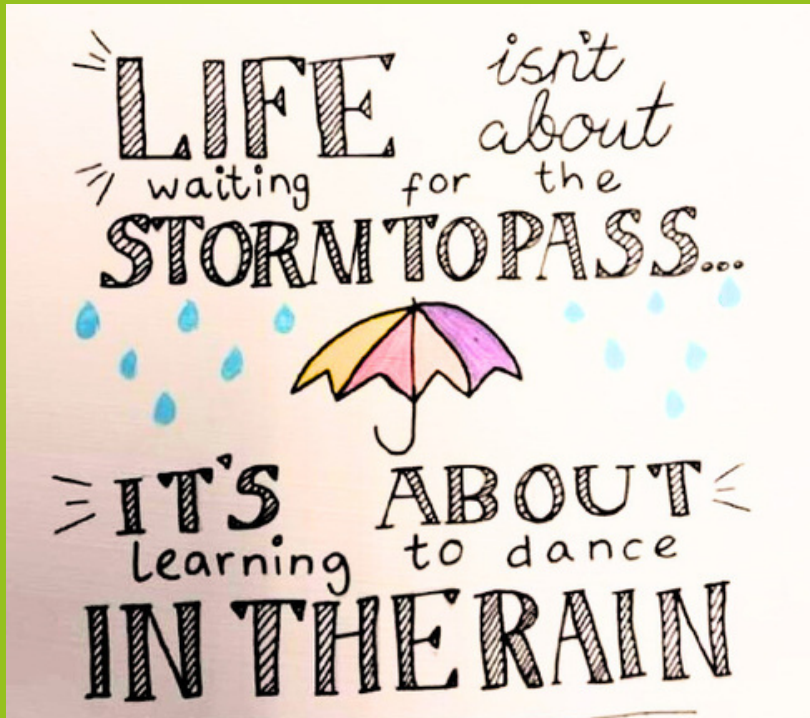 LIFE isn't
about
waiting for the
STORM TO PASS...
IT'S ABOUT
learning to dance
IN THE RAIN